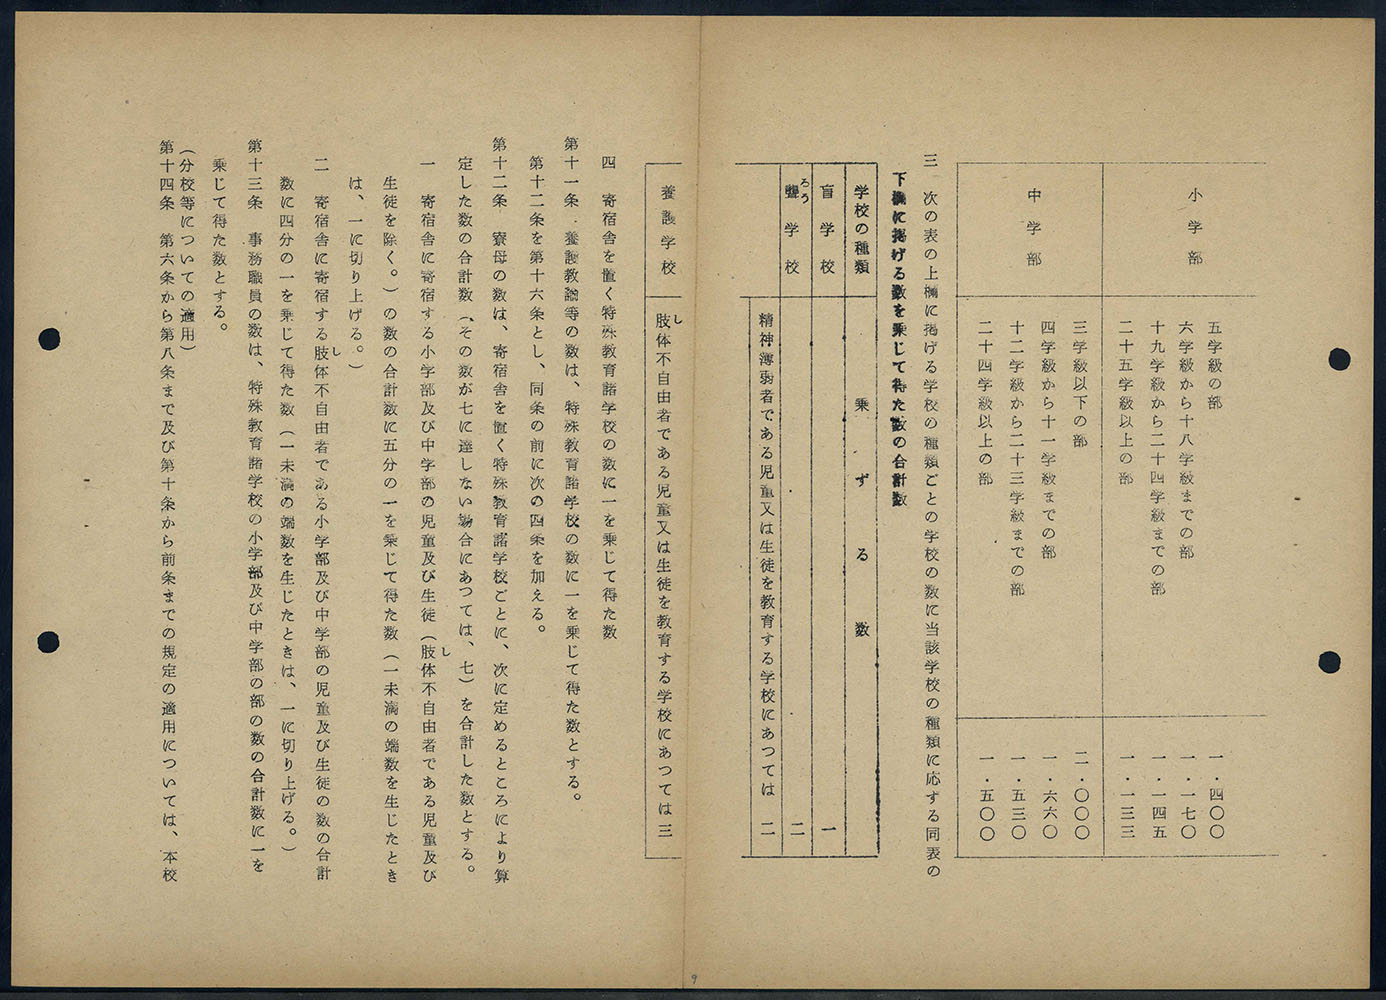 小学部
五学級の部　一・四〇〇
六学級から十八学級までの部　一・一七〇
十九学級から二十四学級までの部　一・一四五
二十五学級以上の部　一・一三三
中学部
三学級以下の部　二・〇〇〇
四学級から十一学級までの部　一・六六〇
十二学級から二十三学級までの部　一・五三〇
二十四学級以上の部　一・五〇〇
三　次の表の上欄に掲げる学校の種類ごとの学校の数に当該学校の種類に応ずる同表の
下欄に掲げる数を乗じて得た数の合計数
学校の種類　乗ずる数
盲学校　一
聾学校　二
ろう
精神薄弱者である児童又は生徒を教育する学校にあつては　二
養護学校
肢体不自由者である児童又は生徒を教育する学校にあつては　三
し
四　寄宿舎を置く特殊教育諸学校の数に一を乗じて得た数
第十一条　養護教諭等の数は、特殊教育諸学校の数に一を乗じて得た数とする。
第十二条を第十六条とし、同条の前に次の四条を加える。
第十二条　寮母の数は、寄宿舎を置く特殊教育諸学校ごとに、次に定めるところにより算
定した数の合計数（その数が七に達しない場合にあつては、七）を合計した数とする。
一　寄宿舎に寄宿する小学部及び中学部の児童及び生徒（肢体不自由者である児童及び
し
生徒を除く。）の数の合計数に五分の一を乗じて得た数（一未満の端数を生じたとき
は、一に切り上げる。）
二　寄宿舎に寄宿する肢体不自由者である小学部及び中学部の児童及び生徒の数の合計
し
数に四分の一を乗じて得た数（一未満の端数を生じたときは、一に切り上げる。）
第十三条　事務職員の数は、特殊教育諸学校の小学部及び中学部の部の数の合計数に一を
乗じて得た数とする。
（分校等についての適用）
第十四条　第六条から第八条まで及び第十条から前条までの規定の適用については、本校
9